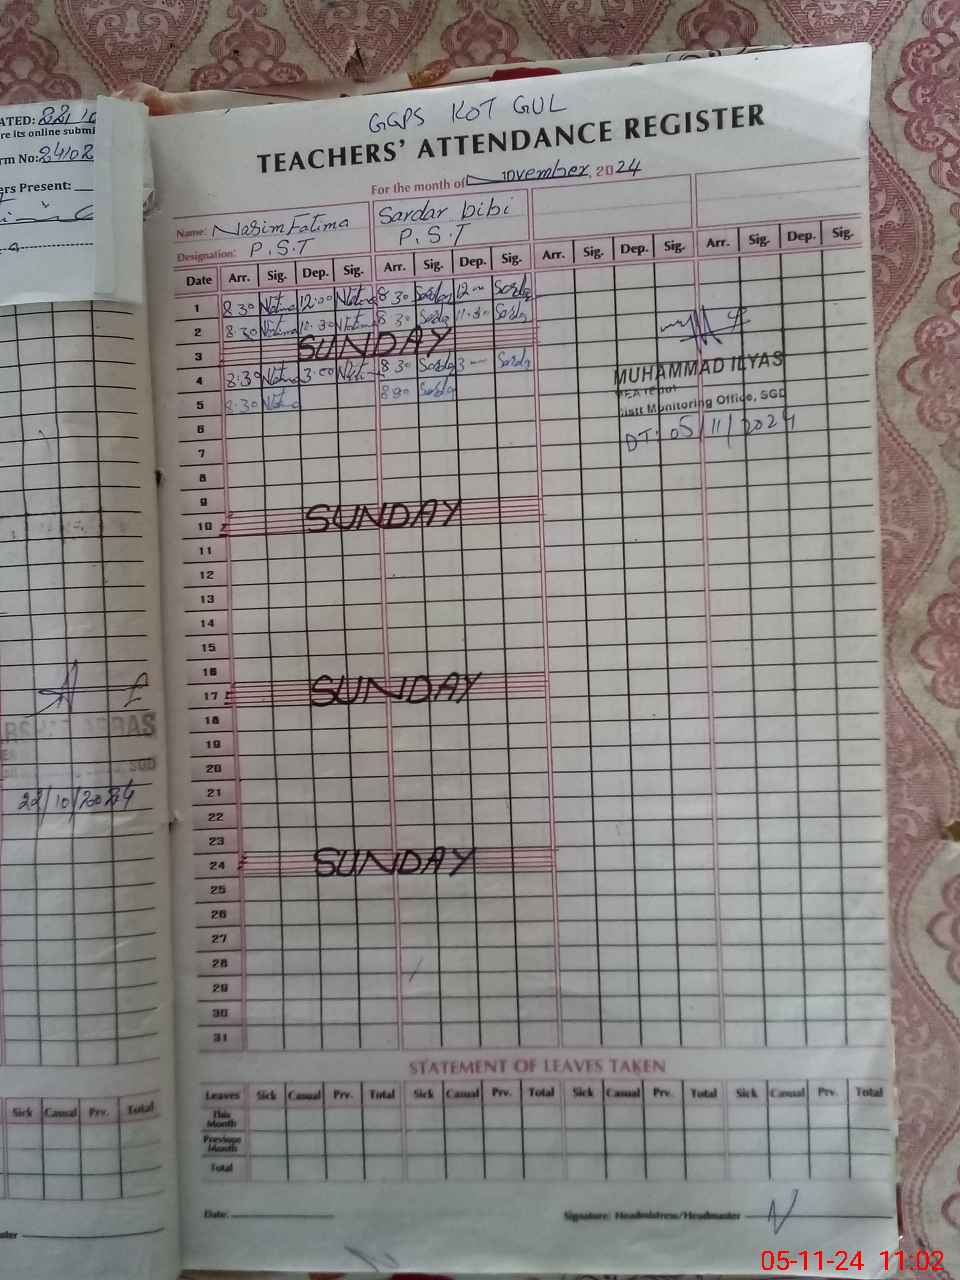 ATED: 22/10
re its online submi
rm No: 24102
ers Present:
GGPS KOT GUL
TEACHERS' ATTENDANCE REGISTER
For the month of November, 2024
Name: Nasim Fatima Sardar bibi
Designation: P.S.T P.S.T
Date Arr. Sig. Dep. Sig. Arr. Sig. Dep. Sig. Arr. Sig. Dep. Sig. Arr. Sig. Dep. Sig.
1 8 30 12:00 8 30 12
2 8:30 11:30 8 30 11:30
3 SUNDAY
4 8:30 3:00 8 30 3
5 8:30 8 30
MUHAMMAD ILYAS
Monitoring Office, SGD
DT: 05/11/2024
6
7
8
9
10 SUNDAY
11
12
13
14
15
16
17 SUNDAY
18
19
20
21
22
23
24 SUNDAY
25
26
27
28
29
30
31
ABBAS
SGD
22/10/2024
STATEMENT OF LEAVES TAKEN
Leaves Sick Casual Prv. Total Sick Casual Prv. Total Sick Casual Prv. Total Sick Casual Prv. Total
This Month
Previous Month
Total
Sick Casual Prv. Total
Date: Signature: Headmistress/Headmaster
05-11-24 11:02